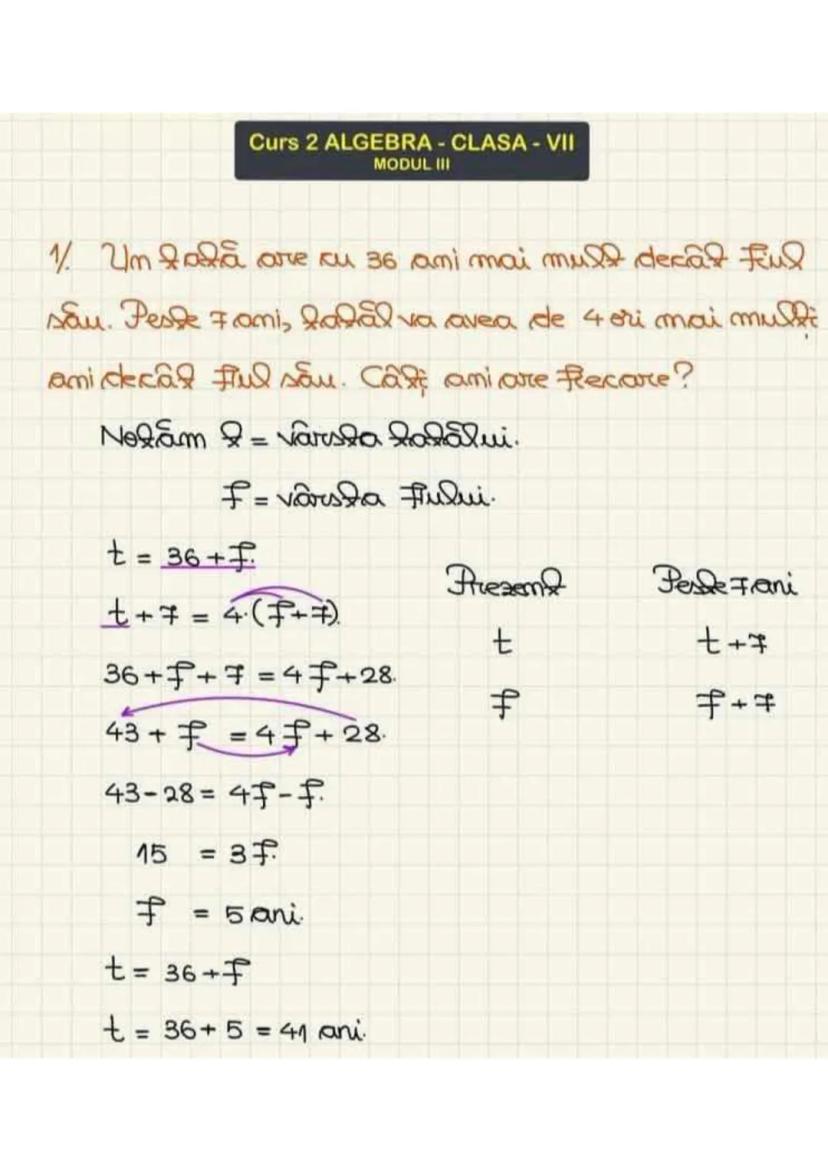 Curs 2 ALGEBRA - CLASA - VII
MODUL III
1/. Un tată are cu 36 ani mai mult decât fiul
său. Peste 7 ani, tatăl va avea de 4 ori mai mulți
ani decât fiul său. Câți ani are fiecare?
Notăm t = vârsta tatălui.
f = vârsta fiului.
t = 36 + f.
Prezent Peste 7 ani
t + 7 = 4·(f+7).
t t+7
36 + f + 7 = 4f + 28.
f f+7
43 + f = 4f + 28.
43 - 28 = 4f - f.
15 = 3f.
f = 5 ani.
t = 36 + f
t = 36 + 5 = 41 ani.